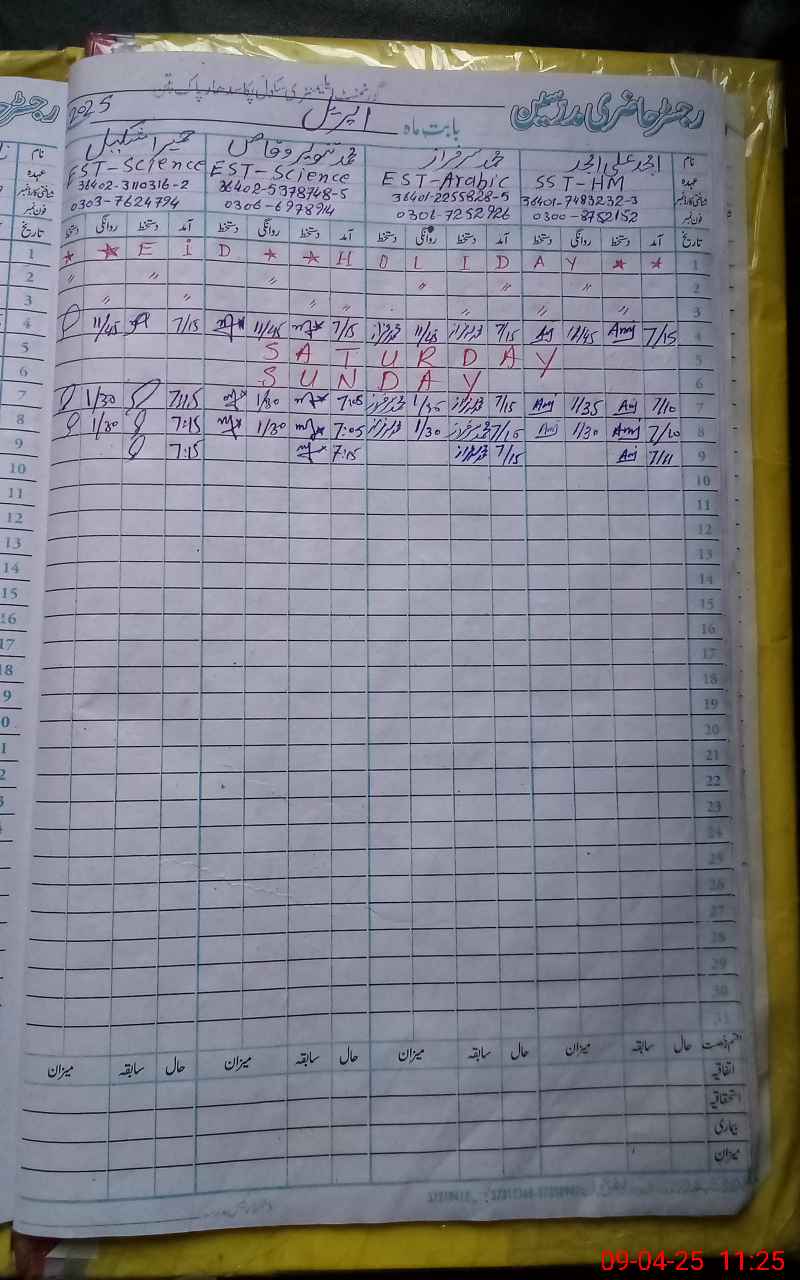 گورنمنٹ ایلیمنٹری سکول پکا سدھار پاک پتن
رجسٹر حاضری مدرسین
بابت ماہ اپریل 2025
نام امجد علی امجد محمد سرفراز محمد تنویر وقاص حمیرا شکیل
عہدہ SST-HM EST-Arabic EST-Science EST-Science
شناختی کارڈ نمبر 36401-7483232-3 36401-2255828-5 36402-5378748-5 36402-3110316-2
فون نمبر 0300-8752152 0306-7252926 0306-6978914 0303-7624794
تاریخ آمد دستخط روانگی دستخط آمد دستخط روانگی دستخط آمد دستخط روانگی دستخط آمد دستخط روانگی دستخط تاریخ
1 * * E i D * * H O L I D A Y * * 1
2 " " " " " " 2
3 " " " " " " " 3
4 11/45 7/15 11/45 7/15 11/45 7/15 Amj 11/45 Amj 7/15 4
5 S A T U R D A Y 5
6 S U N D A Y 6
7 1/30 7:15 1/30 7:05 1/30 7/15 Amj 1/35 Amj 7/10 7
8 1/30 7:15 1/30 7:05 1/30 7/15 Amj 1/30 Amj 7/10 8
9 7:15 7:15 7/15 Amj 7/11 9
10 10
11 11
12 12
13 13
14 14
15 15
16 16
17 17
18 18
9 19
0 20
1 21
2 22
3 23
24
25
26
27
28
29
30
31
قسم رخصت حال سابقہ میزان حال سابقہ میزان حال سابقہ میزان حال سابقہ میزان
اتفاقیہ
استحقاقیہ
بیماری
میزان
09-04-25 11:25